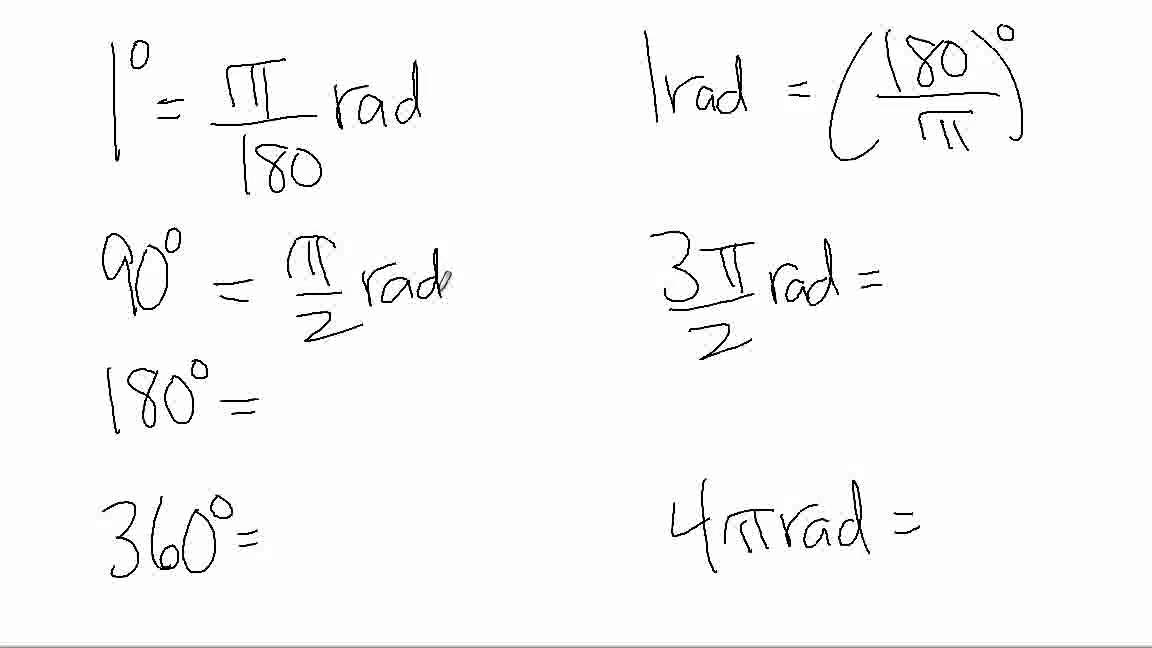 1° = π/180 rad
1 rad = (180/π)°
90° = π/2 rad
3π/2 rad =
180° =
360° =
4π rad =